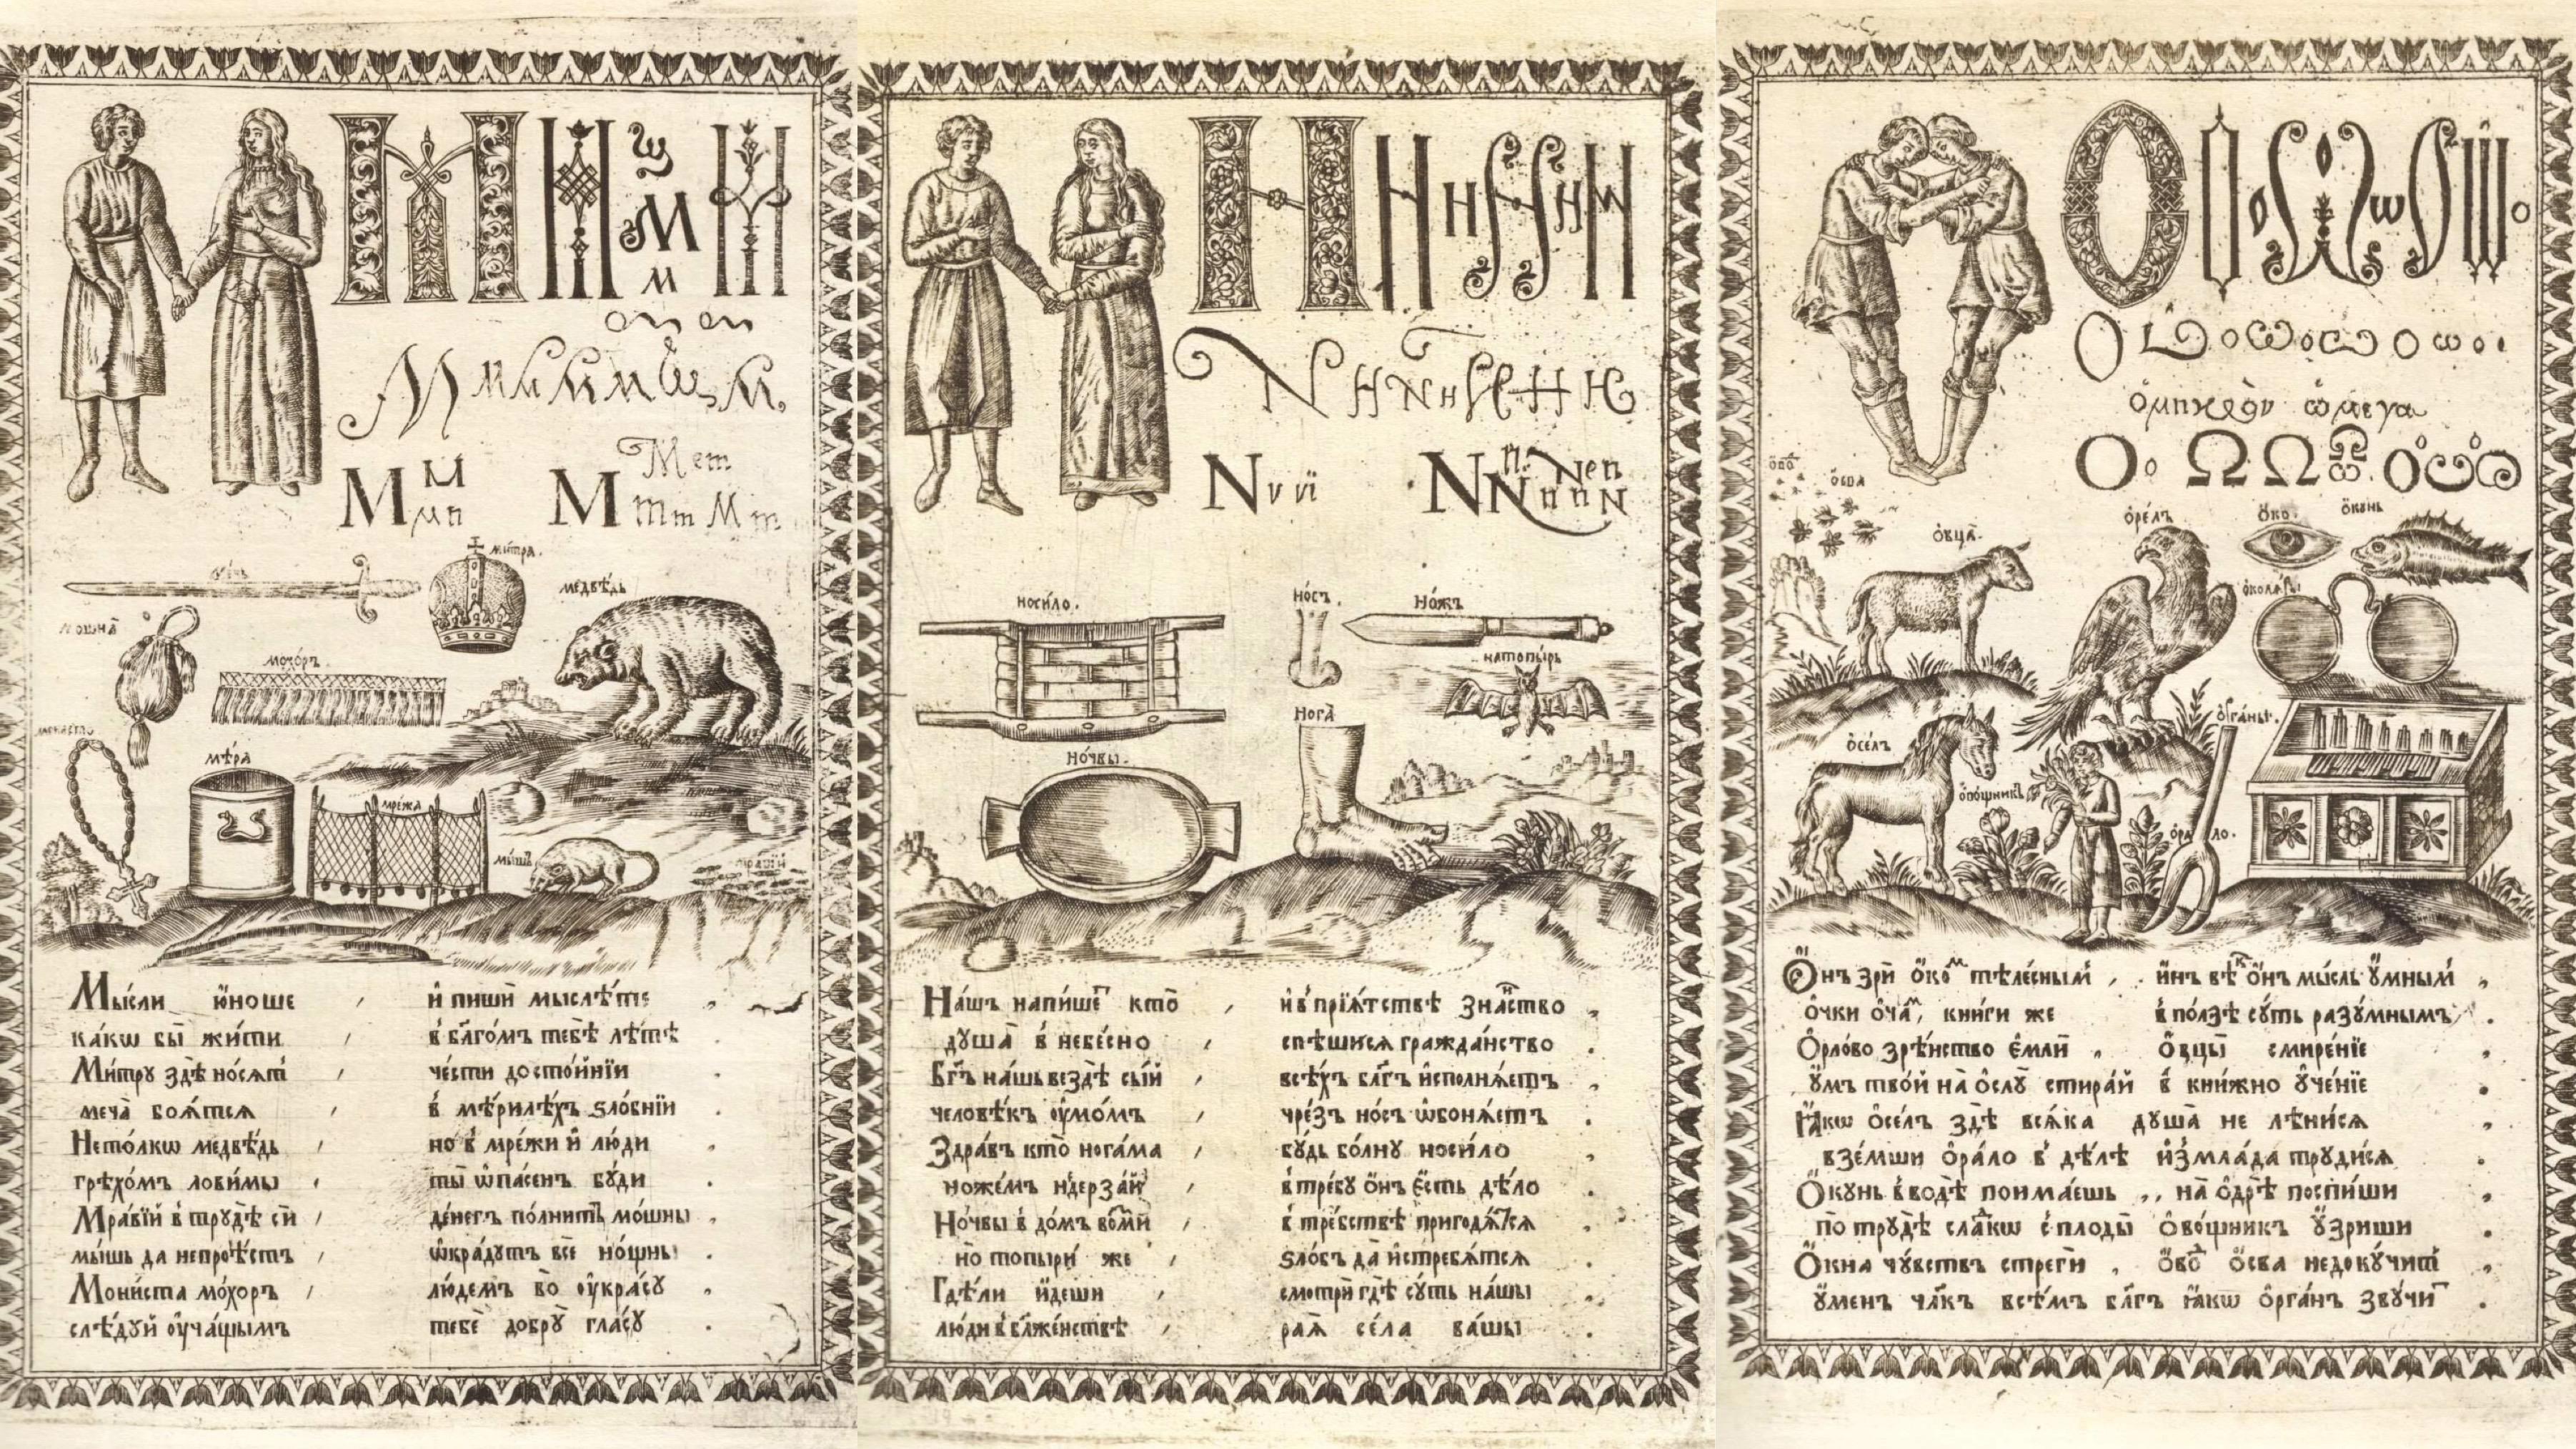 М М м
М м п
М Мет
м т М т
мечь
ми́тра.
медвѣ́дь
мошна̀
мо́хоръ
монисто
мѣ́ра
мре́жа
мы́шь
мравїй
Мы́сли ю҆́ноше , и҆ пишѝ мыслѣ́те ,
ка́кѡ бы̀ жи́ти , в҆ бл҃го́мъ тебѣ̀ лѣ́тѣ .
Ми́трꙋ здѣ̀ но́сѧт , че́сти досто́йнїи
меча̀ боѧ́тсѧ , в҆ мѣ́рилѣхъ ѕло́бнїи .
Нето́лкѡ медвѣ́дь , но в҆ мре́жи и҆ лю́ди ,
грѣхо́мъ лови́мы , ты̀ ѡ҆па́сенъ бꙋ́ди .
Мра́вїй в҆ трꙋдѣ̀ сѝ , де́негъ по́лнитъ мо́шны ,
мы́шь да непроѣ́стъ , ѡ҆кра́дꙋтъ всѐ но́щны .
Мони́ста мо́хоръ , лю́демъ во оу҆кра́сꙋ ,
слѣ́дꙋй оу҆ча́щымъ тебѐ добрꙋ̀ гла́сꙋ .
Н Н н н М
N ν νї
N N
носи́ло.
но́съ.
Но́жъ
натопы́рь
Нога̀
Но́чвы.
На́шъ напи́ше кто̀ , и҆ в҆ прїѧ́тствѣ зна́нство ,
дꙋша̀ в҆ небе́сно , спѣши́сѧ гражда́нство .
Бг҃ъ на́шъ вездѣ̀ сы́й , всѣ́хъ бл҃гъ и҆сполнѧ́етъ ,
человѣ́къ оу҆мо́мъ , чре́зъ но́съ ѡ҆бонѧ́етъ .
Здра́въ кто̀ нога́ма , бꙋ́дь бо́лнꙋ носи́ло ,
ноже́мъ не́дерзай , в҆ тре́бꙋ о҆́нъ є҆́сть дѣ́ло .
Но́чвы в҆ до́мъ возмѝ , в҆ тре́бствѣ пригодѧ́тсѧ ,
но топырѝ же , ѕло́бъ да̀ и҆стребѧ́тсѧ .
Гдѣ́ли и҆́деши , смотрѝ гдѣ̀ сꙋ́ть на́шы .
лю́ди в҆ бл҃же́нствѣ , раѧ̀ се́ла ва́шы .
О о ѡ
о҆мпкро̀ν ѡ҆мега
О ο Ω Ω
о҆́сва
о҆вца̀.
о҆ре́лъ
о҆́ко.
о҆́кꙋнь
о҆се́лъ
о҆во́щникъ
о҆рга́ны.
о҆ра́ло.
О҆́нъ зрѝ о҆́комъ тѣле́сным , и҆́нъ вѣ́к о҆́нъ мы́сль оу҆́мным ,
о҆́чки о҆ча́м, кни́ги же в҆ по́лзѣ сꙋ́ть разꙋ́мнымъ .
О҆рло́во зрѣ́нство є҆млѝ , о҆вцы̀ смире́нїе ,
оу҆́мъ тво́й на̀ о҆слꙋ̀ стира́й в҆ кни́жно оу҆че́нїе .
Ꙗ҆́кѡ о҆се́лъ здѣ̀ всѧ́ка дꙋша̀ не лѣни́сѧ ,
взе́мши о҆ра́ло в҆ дѣ́лѣ и҆змла́да трꙋди́сѧ .
О҆́кꙋнь в҆ водѣ̀ поима́ешь , на̀ о҆дрѣ̀ поспи́ши ,
по трꙋдѣ̀ сла́ткѡ с҆ плоды̀ о҆во́щникъ оу҆́зриши .
О҆́кна чꙋ́вствъ стрегѝ , о҆́вод о҆́сва недокꙋ́чит ,
оу҆́менъ чл҃къ всѣ́мъ бл҃гъ ꙗ҆́кѡ о҆рга́нъ звꙋчи́т .